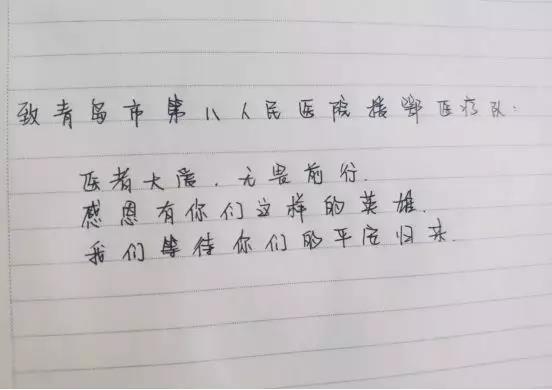 致青岛市第八人民医院援鄂医疗队:
医者大爱.无畏前行.
感恩有你们这样的英雄.
我们等待你们的平安归来.